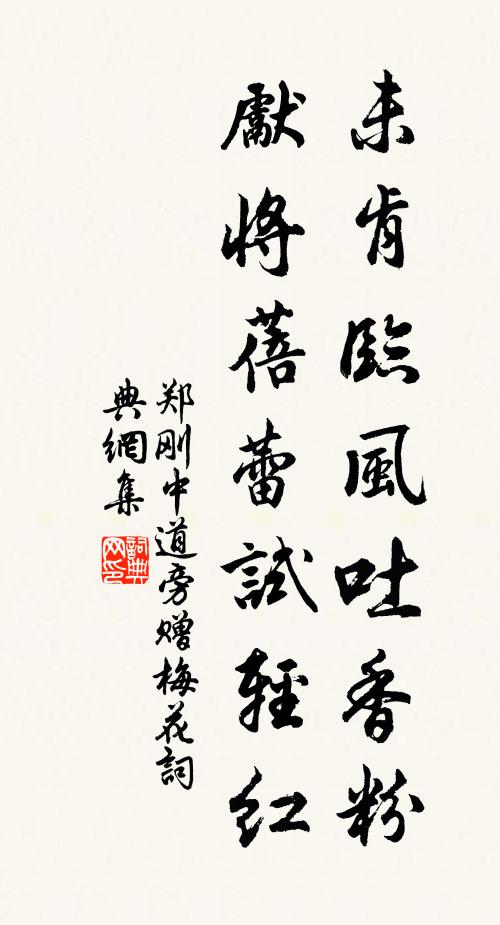 未肯臨風吐香粉
獻將蓓蕾試輕紅
郑刚中道旁赠梅花詞
典網集
詞典网印